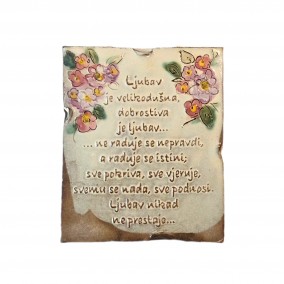 Ljubav
je velikodušna,
dobrostiva
je ljubav...
... ne raduje se nepravdi,
a raduje se istini;
sve pokriva, sve vjeruje,
svemu se nada, sve podnosi.
Ljubav nikad
ne prestaje...